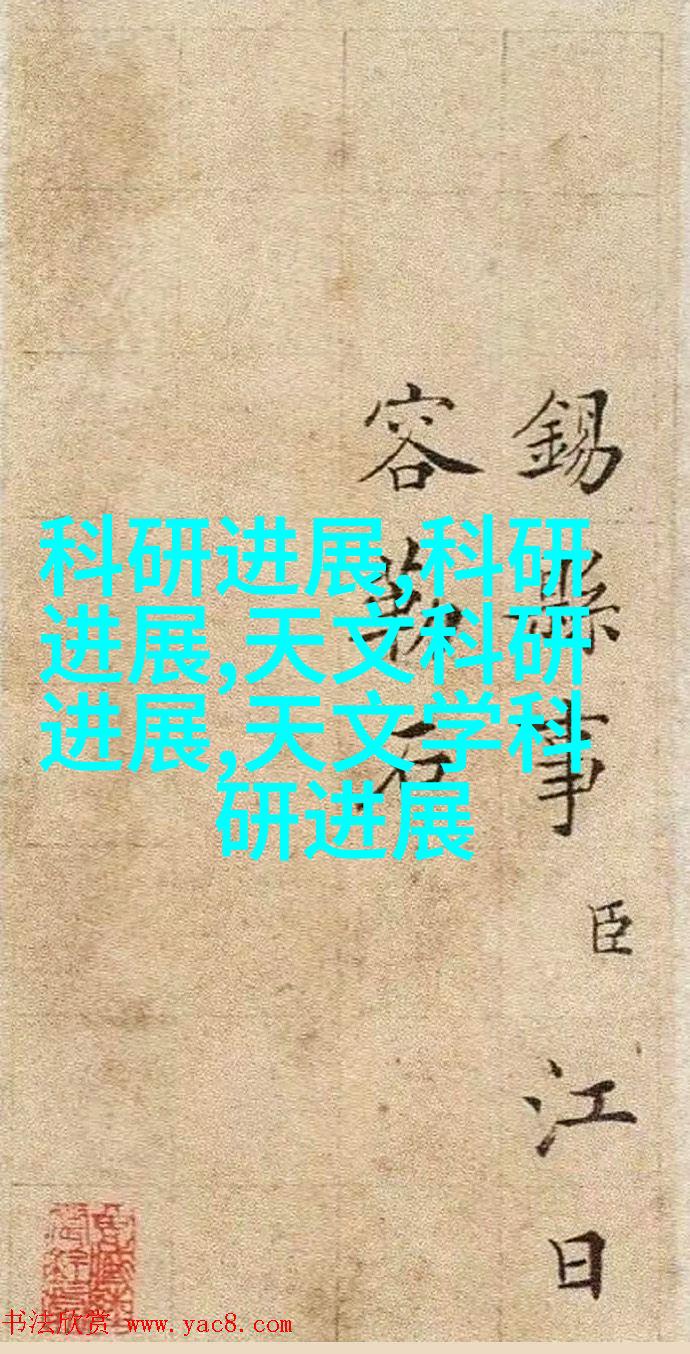 科研进展,科研
进展,天文科研
进展,天文学科
研进展
錫縣事臣江日
容蘇石
书法欣赏 www.yac8.com